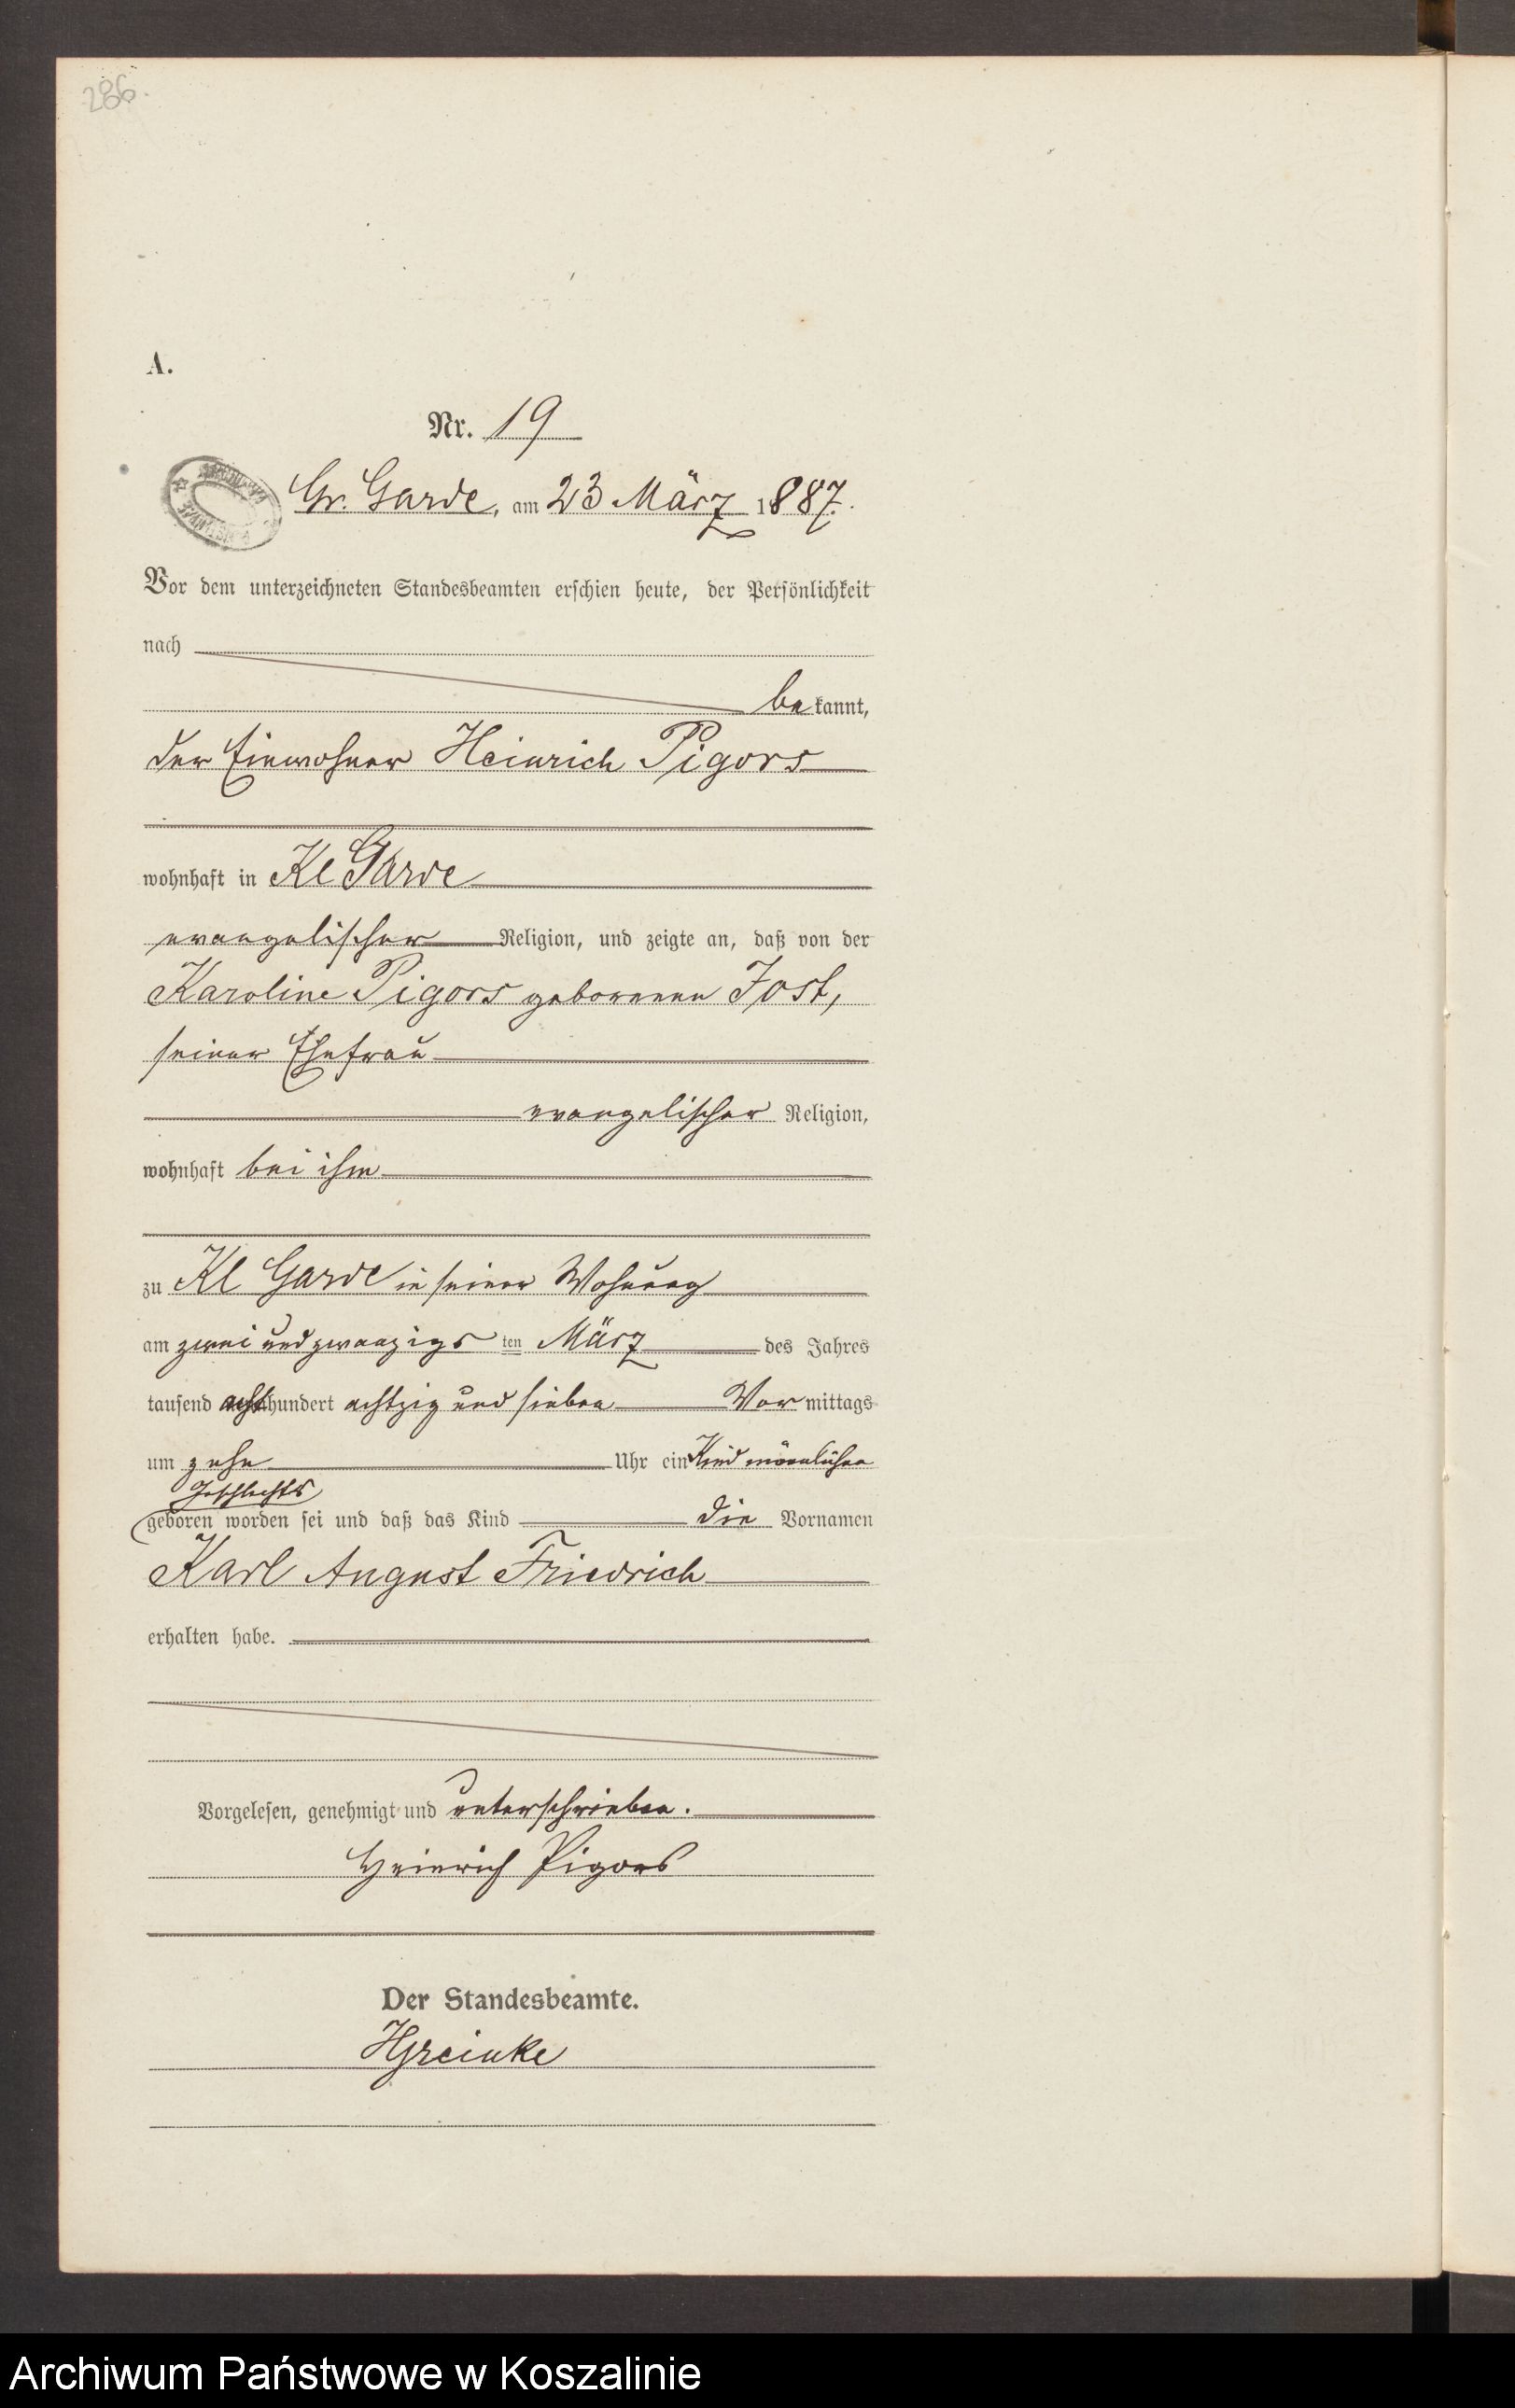 286.
A.
Nr. 19
Gr. Garde, am 23 März 1887.
Vor dem unterzeichneten Standesbeamten erschien heute, der Persönlichkeit
nach
bekannt,
der Einwohner Heinrich Pigors
wohnhaft in Kl Garde
evangelischer Religion, und zeigte an, daß von der
Karoline Pigors geborenen Jost,
seiner Ehefrau
evangelischer Religion,
wohnhaft bei ihm
zu Kl Garde in seiner Wohnung
am zwei und zwanzigs ten März des Jahres
tausend acht hundert achtzig und sieben Vor mittags
um zehn Uhr ein Kind männlichen
Geschlechts
geboren worden sei und daß das Kind die Vornamen
Karl August Friedrich
erhalten habe.
Vorgelesen, genehmigt und unterschrieben.
Heinrich Pigors
Der Standesbeamte.
Archiwum Państwowe w Koszalinie